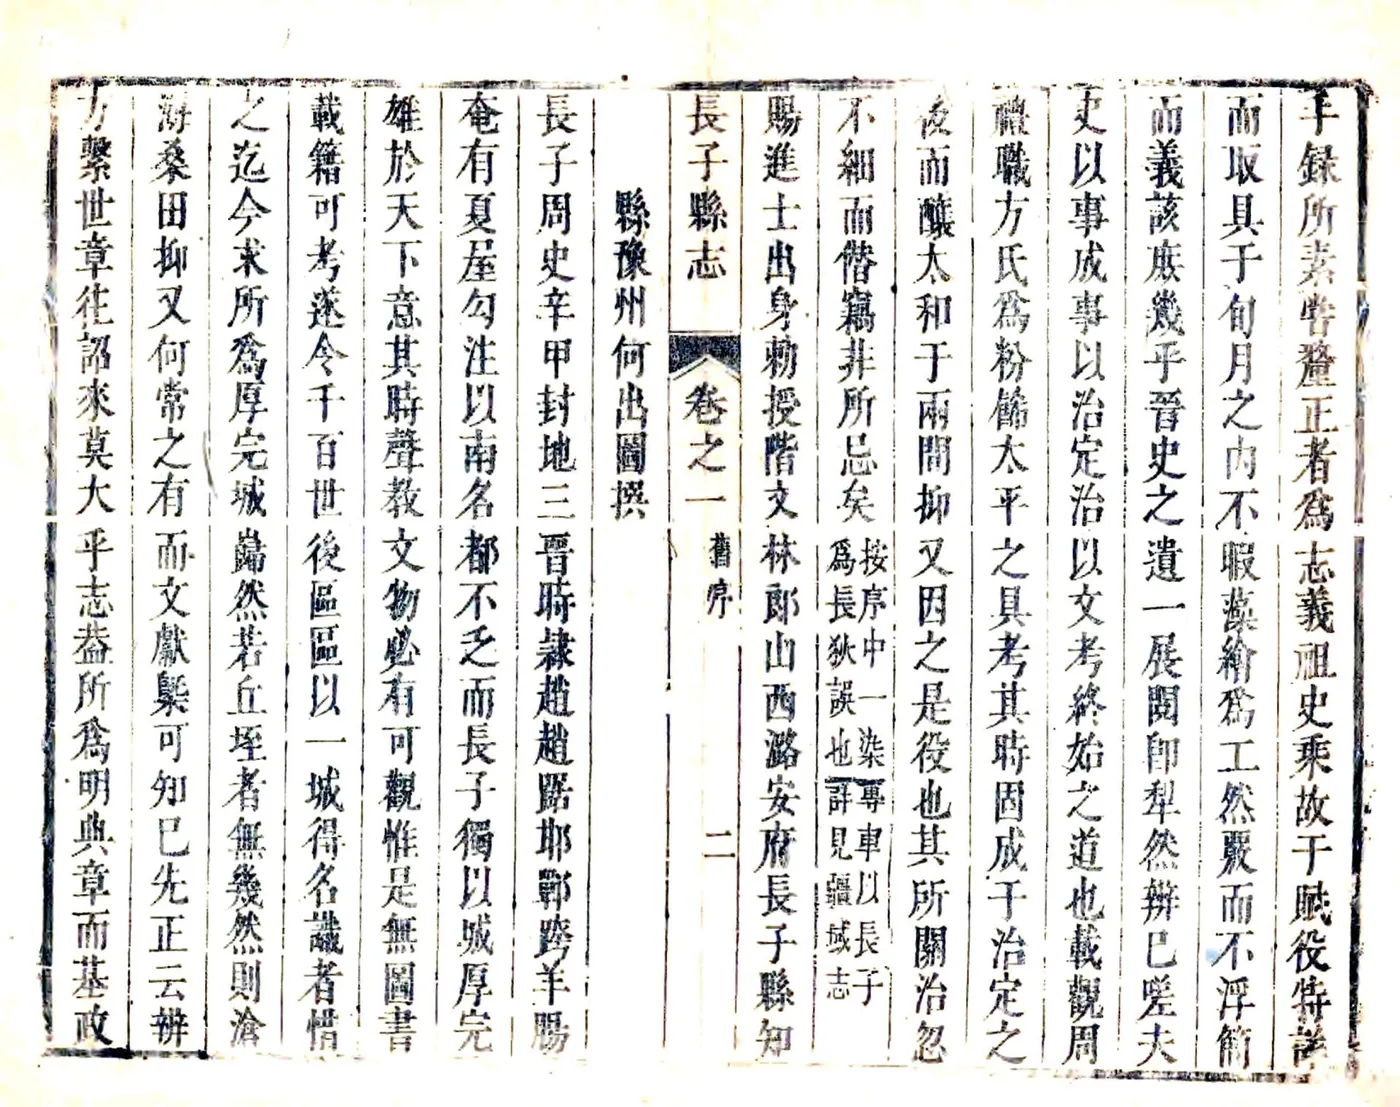 手録所素嘗釐正者爲志義祖史乘故于賦役特詳
而取具于旬月之内不暇藻繪爲工然覈而不浮簡
而義該庶幾乎晉史之遺一展閱卽犁然辨巳嗟夫
史以事成事以治定治以文考終始之道也載觀周
禮職方氏爲粉餙太平之具考其時固成于治定之
後而釀太和于兩間抑又因之是役也其所關治忽
不細而僭竊非所忌矣
按序中一染專車以長子
爲長狄誤也詳見疆域志
賜進士出身勅授階文林郎山西潞安府長子縣知
長子縣志 卷之一 舊序 二
縣豫州何出圖撰
長子周史辛甲封地三晉時隷趙趙踞耶鄲跨羊腸
奄有夏屋勾注以南名都不乏而長子獨以城厚完
雄於天下意其時聲教文物必有可觀惟是無圖書
載籍可考遂令千百世後區區以一城得名識者惜
之迄今求所爲厚完城巋然若丘垤者無幾然則滄
海桑田抑又何常之有而文獻槩可知巳先正云辨
方繫世章徃詔來莫大乎志葢所爲明典章而基政